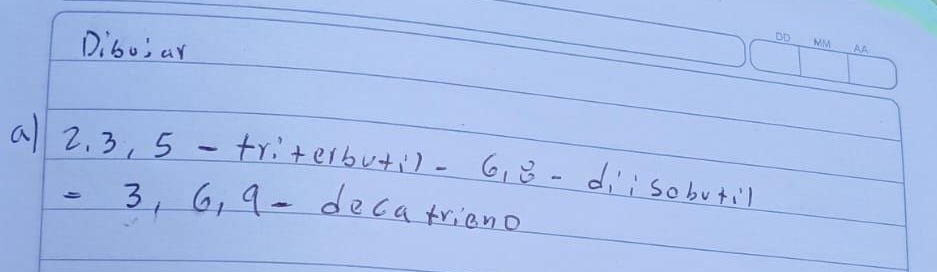 DD MM AA
Dibujar
a) 2,3,5 - triterbutil - 6,8 - diisobutil
= 3, 6, 9 - decatrieno